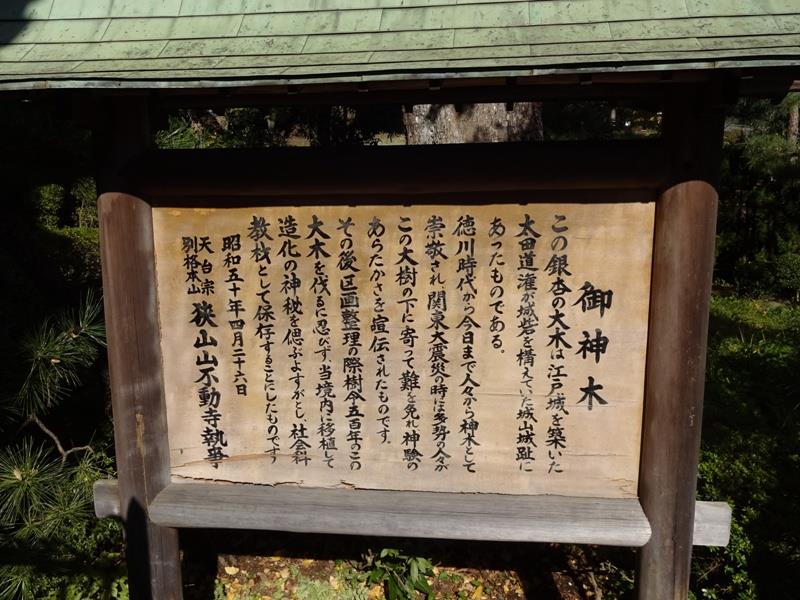 御神木
この銀杏の大木は江戸城を築いた
太田道灌が城砦を構えていた城山城趾に
あったものである。
徳川時代から今日まで人々から神木として
崇敬され、関東大震災の時には多勢の人々が
この大樹の下に寄って難を免れ神験の
あらたかさを宣伝されたものです。
その後区画整理の際樹令五百年のこの
大木を伐るに忍びず、当境内に移植して
造化の神秘を偲ぶよすがとし、社会科
教材として保存することにしたものです。
昭和五十年四月二十六日
天台宗
別格本山 狭山山不動寺執事